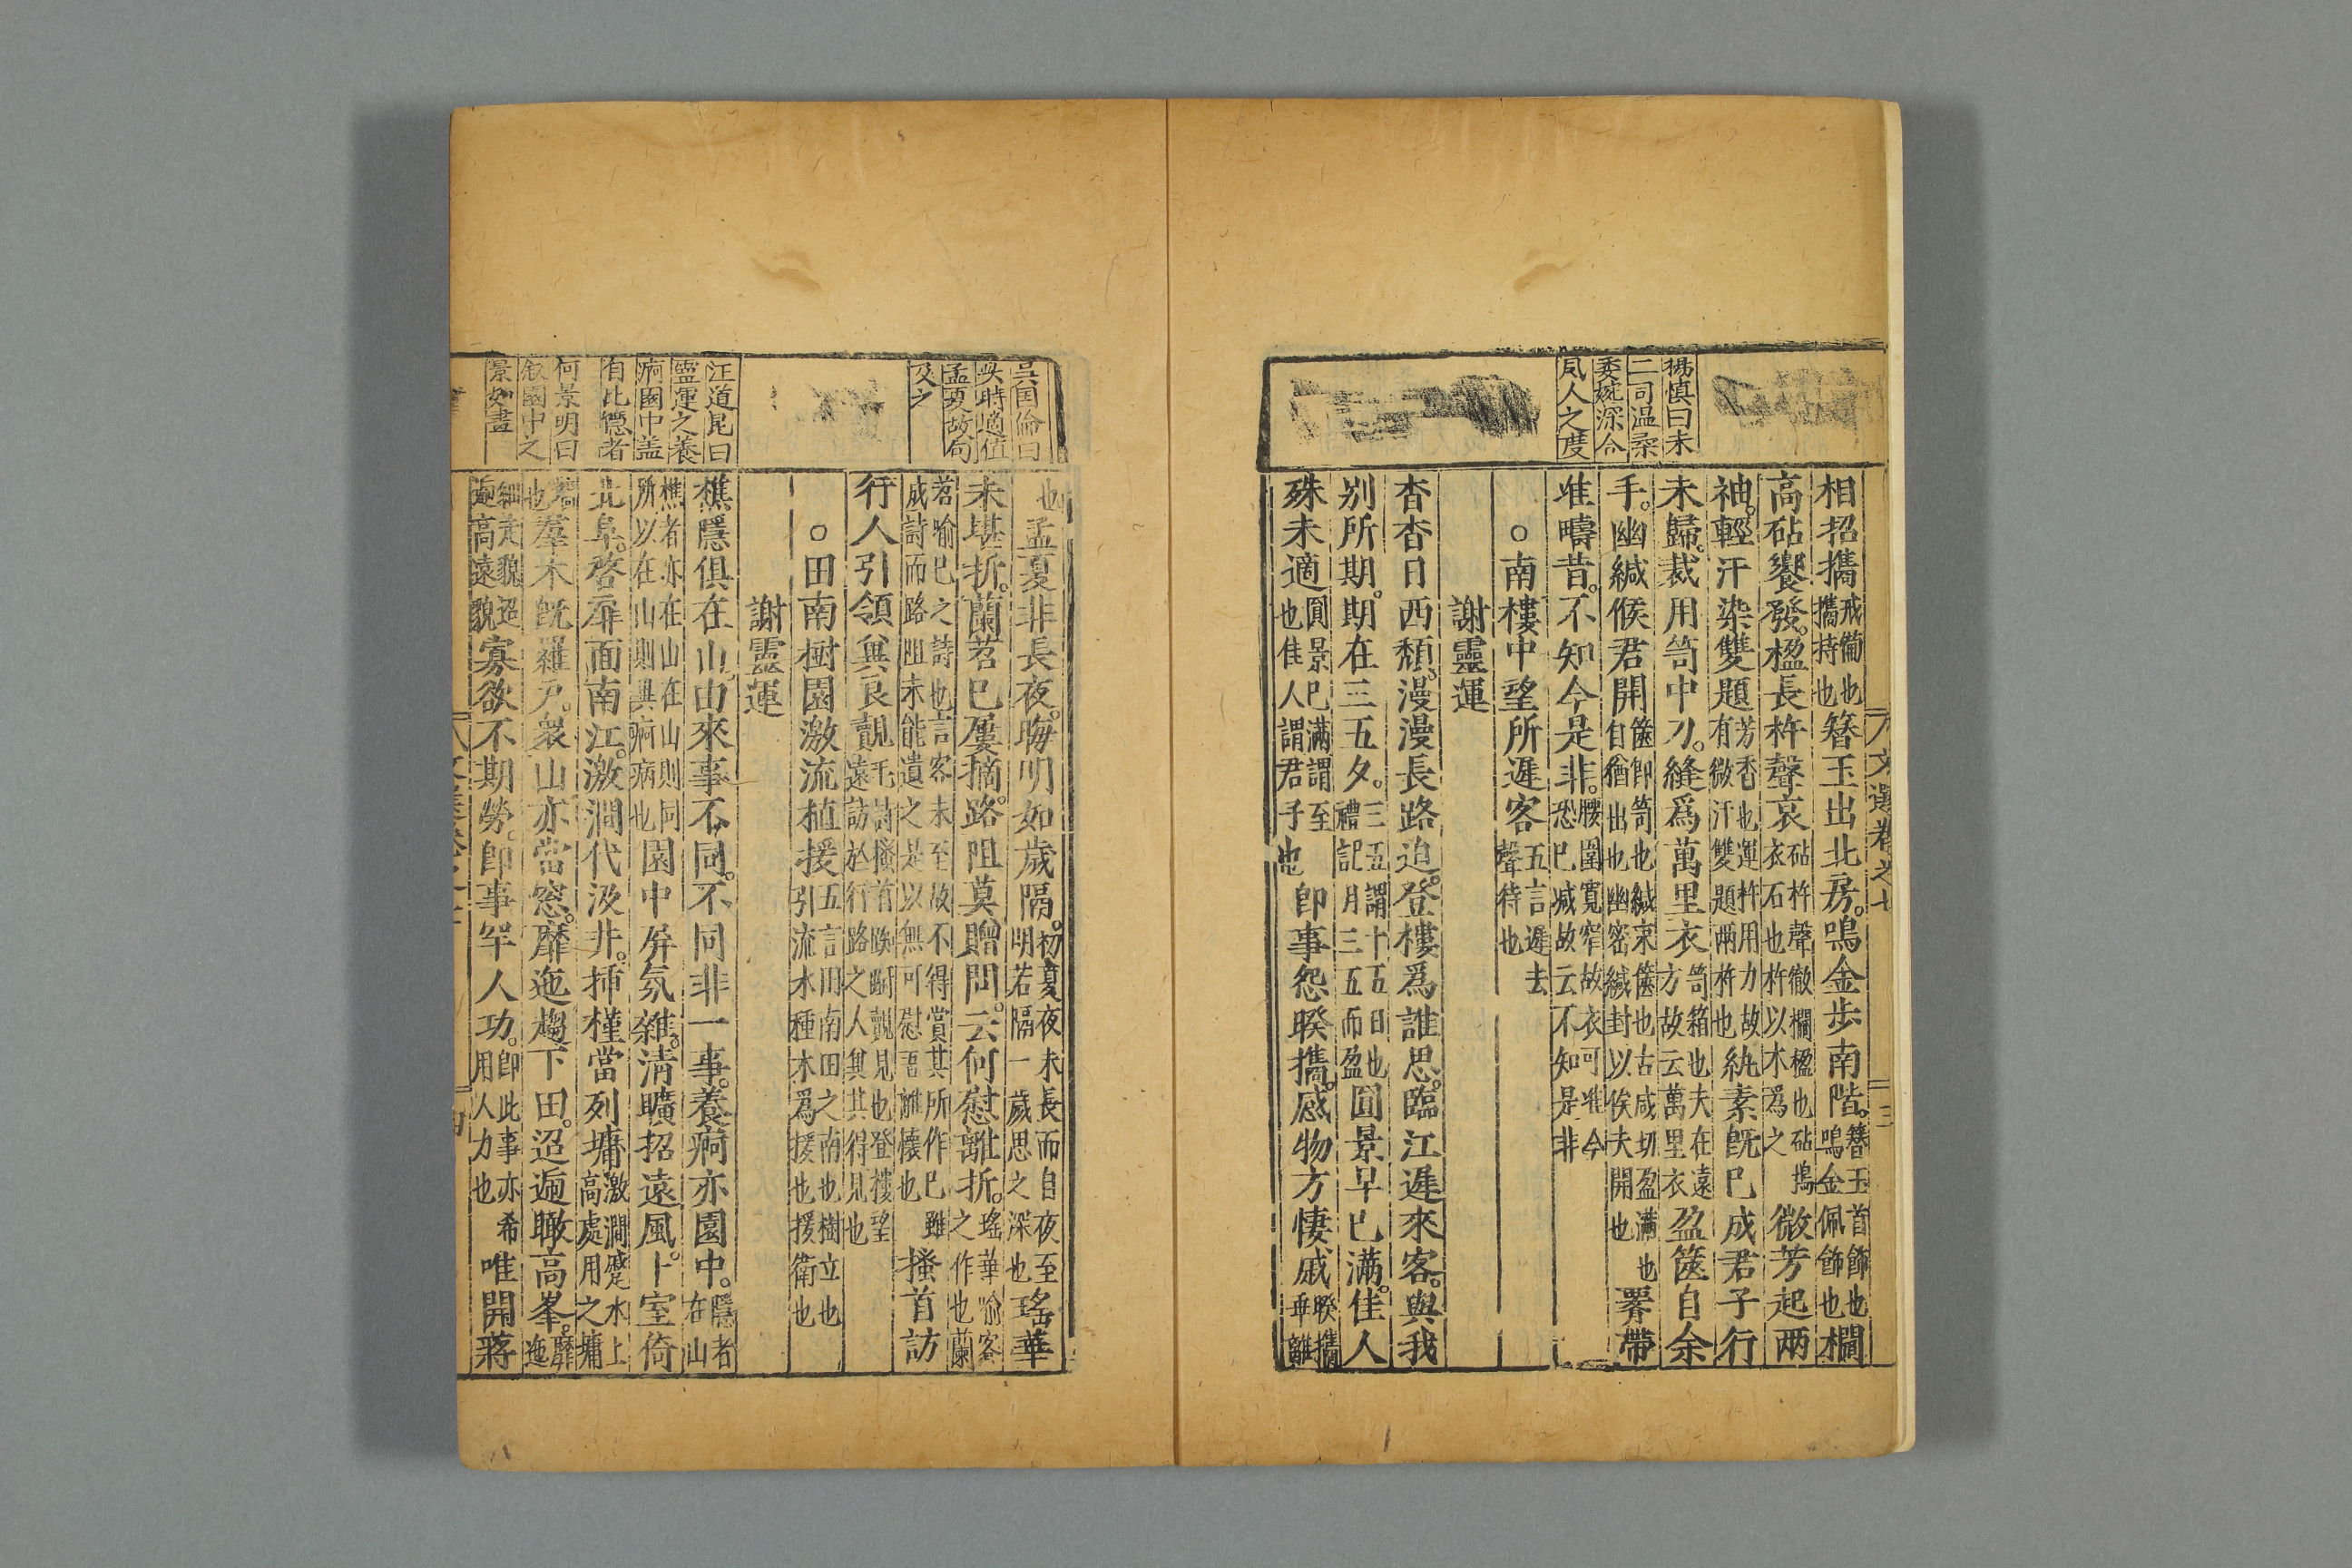 楊慎曰末
二司温柔
委婉深合
風人之度
相招攜戒備也攜持也簪玉出北房。鳴金歩南階。簪玉首飾也鳴金佩飾也欄
高砧響發。楹長杵聲哀砧杵聲徹欄楹也砧擣衣石也杵以木爲之微芳起兩
袖。輕汗染雙題芳香也運杵用力故有微汗雙題兩杵也紈素旣已成君子行
未歸。裁用笥中刀。縫爲萬里衣笥箱也夫在遠方故云萬里衣盈篋自余
手。幽緘候君開篋卽笥也緘束篋也古咸切盈滿也自猶出也幽密緘封以俟夫開也畧帶
准疇昔。不知今是非。腰圍寬窄故衣可准今恐已減故云不知是非
○南樓中望所遲客五言遲去聲待也
謝靈運
杳杳日西頽。漫漫長路迫。登樓爲誰思。臨江遲來客。與我
别所期。期在三五夕。三五謂十五日也禮記月三五而盈圓景早已滿。佳人
殊未適圓景已滿謂至也佳人謂君子也卽事怨睽攜。感物方悽戚睽攜乖離
文選卷之七
三
吳国倫曰
此時適值
孟夏故句
及之
汪道昆曰
靈運之養
痾園中盖
有比隱者
何景明曰
叙園中之
景如畫
也孟夏非長夜。晦明如歲隔。初夏夜未長而自夜至明若隔一歲思之深也瑤華
未堪折。蘭苕已屢摘。路阻莫贈問。云何慰離折。瑤華喻客之作也蘭
苕喻已之詩也言客未至故不得賞其所作已雖成詩而路阻未能遺之是以無可慰吾離懷也搔首訪
行人引領兾良覿毛詩搔首踟躕覿見也登樓望遠訪於行路之人兾其得見也
○田南樹園激流植援五言田南田之南也樹立也引流水種木爲援也援衛也
謝靈運
樵隱俱在山。由來事不同。不同非一事。養痾亦園中。隱者在山
樵者亦在山在山則同所以在山則異痾病也園中屏氛雜。清曠招遠風。卜室倚
北阜。啓扉面南江。激澗代汲井。揷槿當列墉激澗壅水上高處用之墉
墻也羣木旣羅戸。衆山亦當窓。靡迤趨下田。迢遞瞰高峯。靡迤
細走貌迢遞高遠貌寡欲不期勞。卽事罕人功。卽此事亦希用人力也唯開蔣